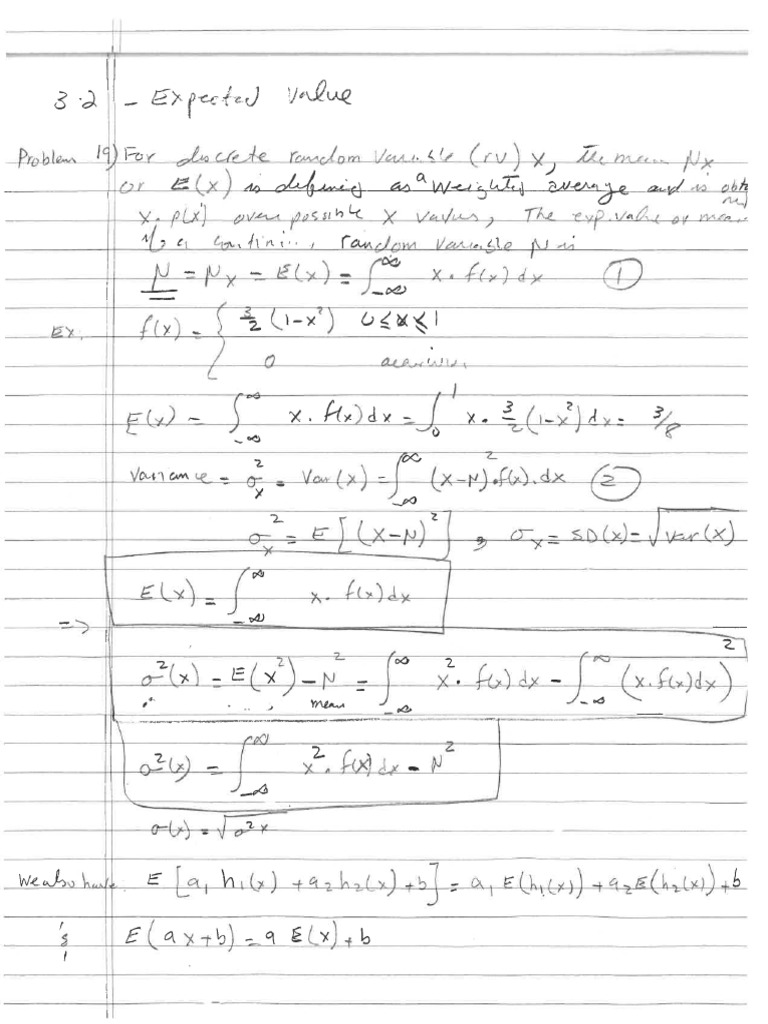 3.2 - Expected Value
Problem 19) For discrete random variable (rv) X, the mean Nx
or E(x) is defined as a weighted average and is
x. p(x) over possible X values, The exp. value or mean
random variable N is
N = Nx = E(x) = ∫_{-∞}^{∞} x. f(x) dx (1)
Ex. f(x) = { 3/2 (1-x²) 0≤x≤1
0
E(x) = ∫_{-∞}^{∞} x. f(x) dx = ∫_0^1 x. 3/2 (1-x²) dx = 3/8
Variance = σ²_x = Var(x) = ∫_{-∞}^{∞} (x-N)². f(x). dx (2)
σ²_x = E[(X-N)²] , σ_x = SD(x) = √var(x)
E(x) = ∫_{-∞}^{∞} x. f(x) dx
=>
σ²(x) = E(x²) - N² = ∫_{-∞}^{∞} x². f(x) dx - ∫_{-∞}^{∞} (x. f(x) dx)²
mean
σ²(x) = ∫_{-∞}^{∞} x². f(x) dx - N²
σ(x) = √σ²x
We also have E[a₁ h₁(x) + a₂ h₂(x) + b] = a₁ E(h₁(x)) + a₂ E(h₂(x)) + b
E(ax+b) = a E(x) + b